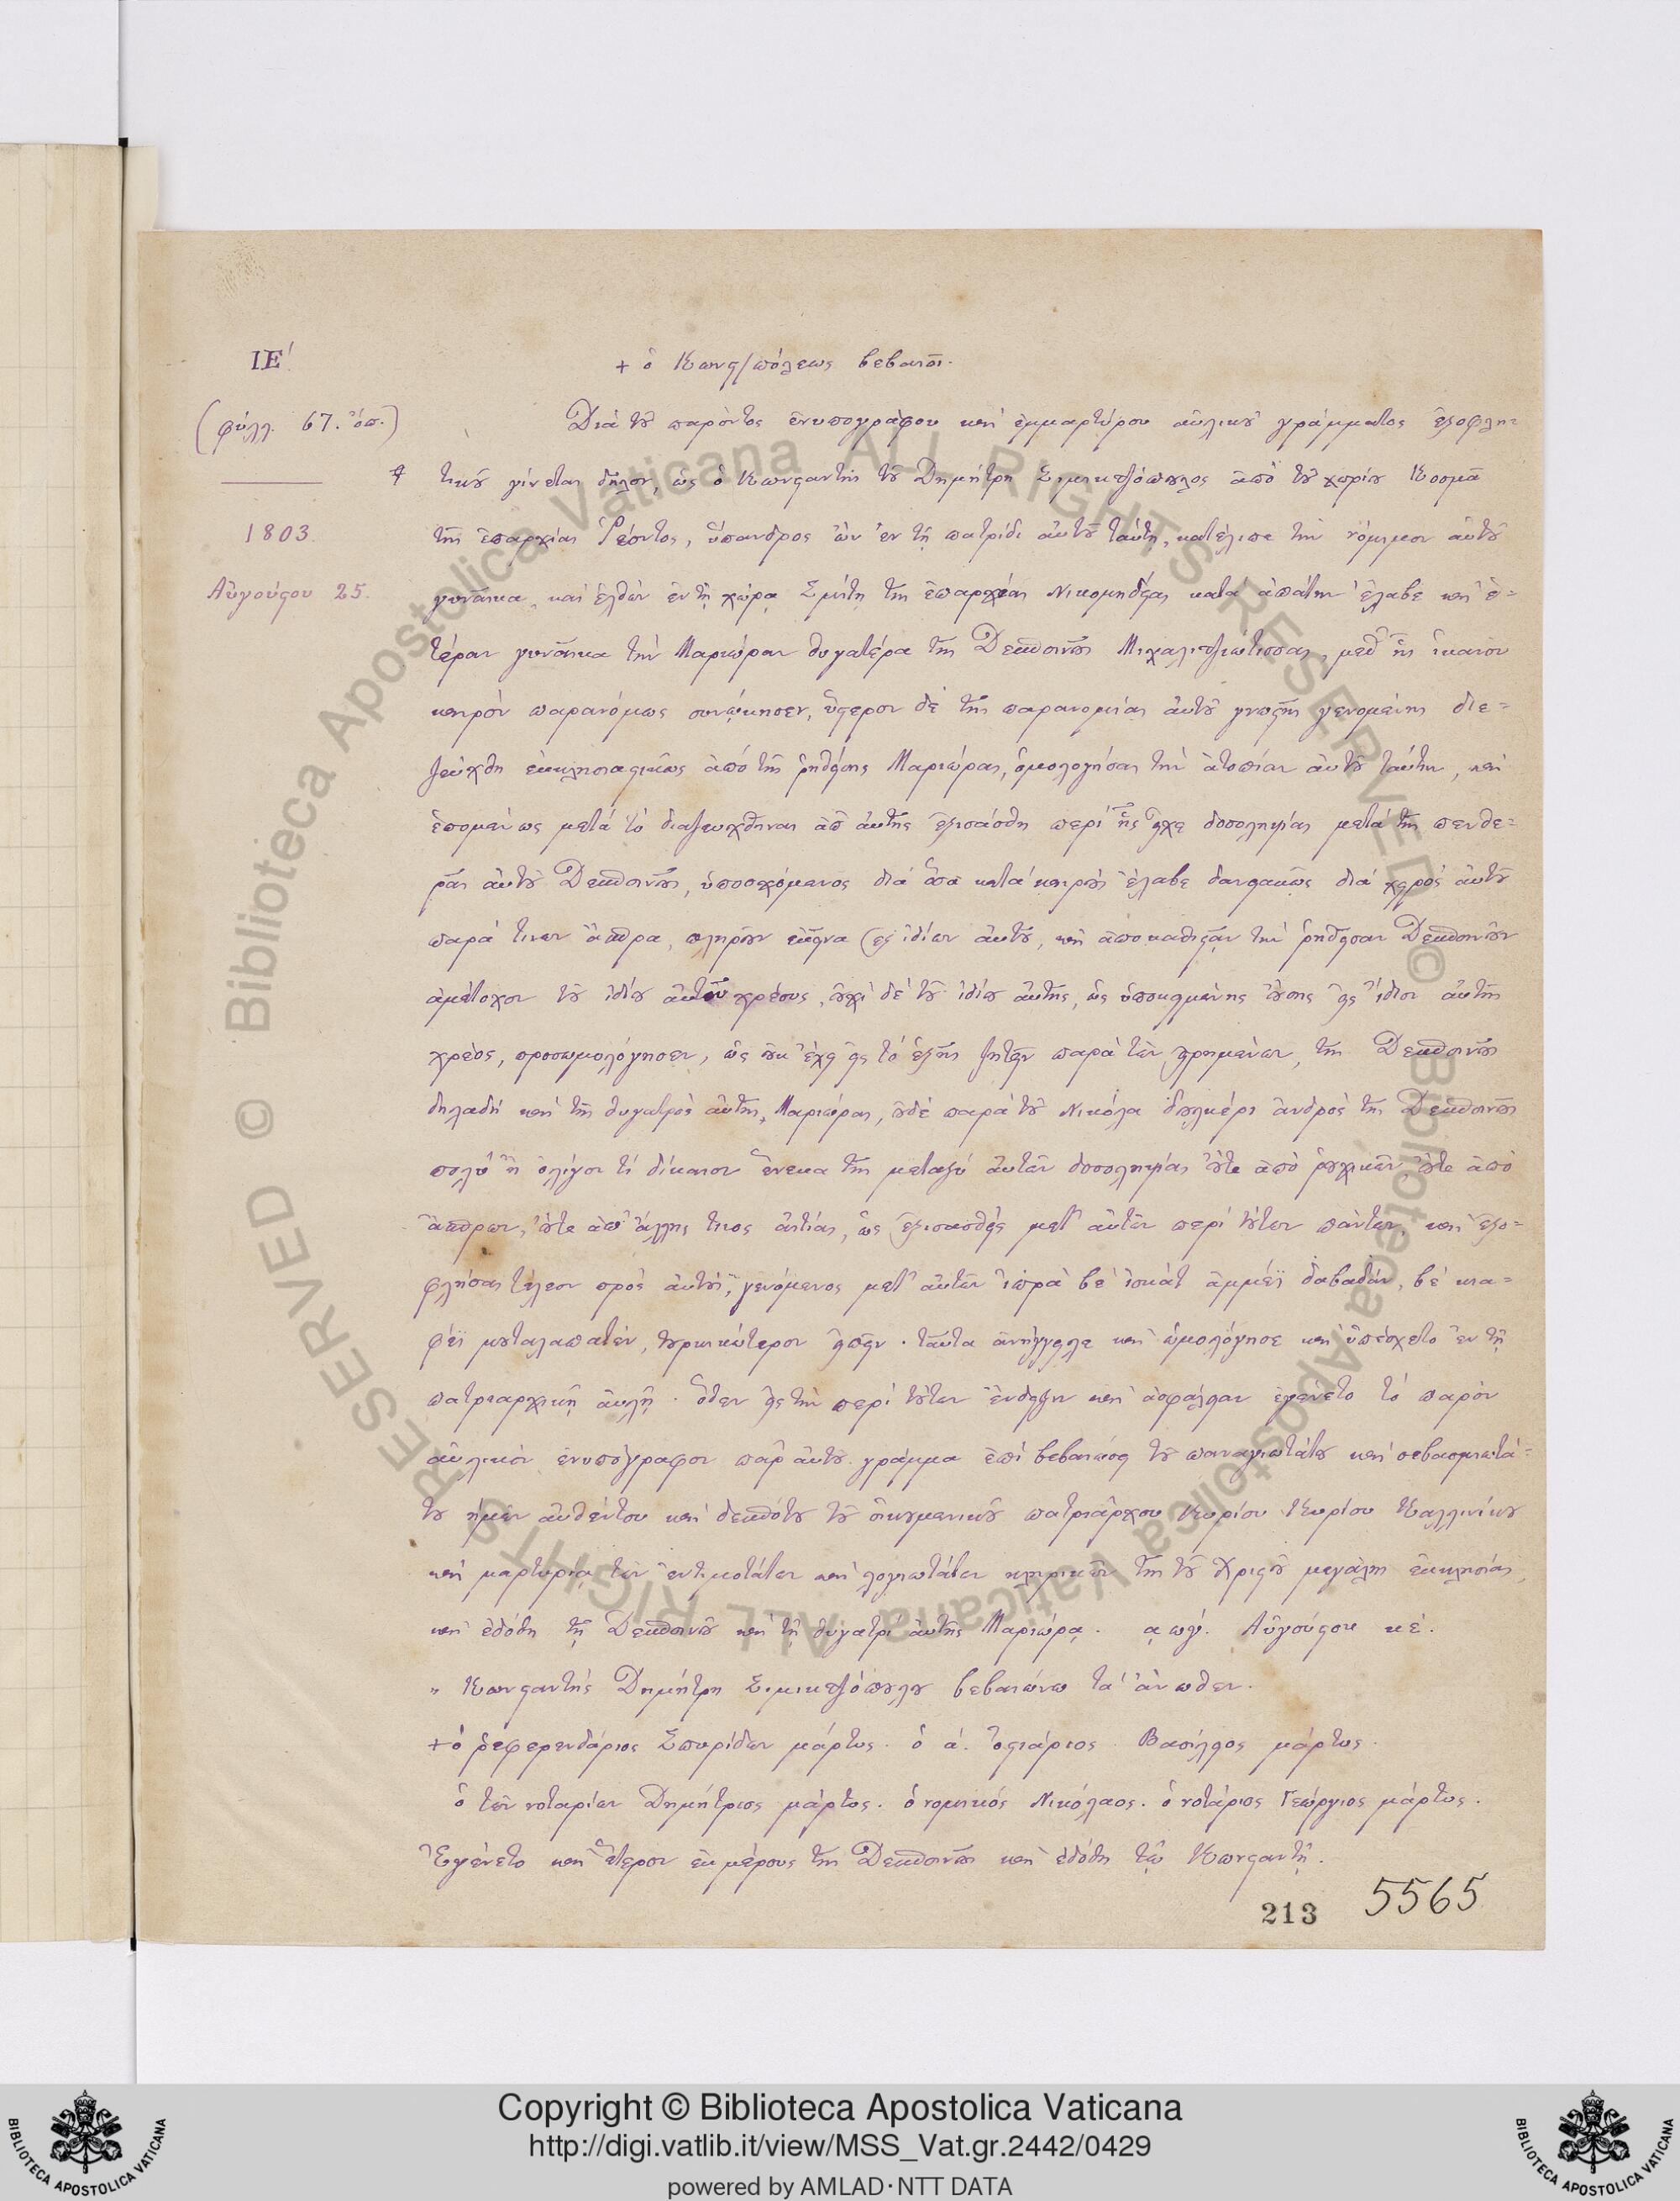 ΙΕ΄.
+ ὁ Κωνς/πόλεως βεβαιοῖ.
(φύλλ. 67. ὄπ.)
Διὰ τοῦ παρόντος ἐνυπογράφου καὶ ἐμμαρτύρου αὐλικοῦ γράμματος ἐξοφλη=
τικοῦ γίνεται δῆλον, ὡς ὁ Κωνσταντὴς τοῦ Δημήτρη Σιμικτζόπουλος ἀπὸ τοῦ χωρίου Κοσμᾶ
1803.
τῆς ἐπαρχίας Ῥέοντος, ὕπανδρος ὢν ἐν τῇ πατρίδι αὐτοῦ ταύτῃ, κατέλιπε τὴν νόμιμον αὐτοῦ
Αὐγούστου 25.
γυναῖκα, καὶ ἐλθὼν ἐν τῇ χώρᾳ τῆς ἐπαρχίας Νικομηδείας κατὰ ἀπάτην ἔλαβε καὶ ἑ=
τέραν γυναῖκα τὴν Μαριώραν θυγατέρα τῆς Δεσποινοῦς Μιχαλιτζιώτισσας, μεθ' ἧς ἱκανὸν
καιρὸν παρανόμως συνῴκησεν, ὕστερον δὲ τῆς παρανομίας αὐτοῦ γνωστῆς γενομένης διε=
ζεύχθη ἐκκλησιαστικῶς ἀπὸ τῆς ῥηθείσης Μαριώρας, ὁμολογήσας τὴν ἀτοπίαν αὐτοῦ ταύτην, καὶ
ἑπομένως μετὰ τὸ διαζευχθῆναι ἀπ' αὐτῆς ἐξισάσθη περὶ ἧς εἶχε δοσοληψίας μετὰ τῆς πενθε=
ρᾶς αὐτοῦ Δεσποινοῦς, ὑποσχόμενος διὰ ὅσα κατὰ καιροὺς ἔλαβε δανειακῶς διὰ χειρὸς αὐτοῦ
παρά τινων ἄσπρα, πληροῦν ἐκεῖνα ἐξ ἰδίων αὐτοῦ, καὶ ἀποκαθιστᾶν τὴν ῥηθεῖσαν Δεσποινοῦν
ἀμέτοχον τοῦ ἰδίου αὐτοῦ χρέους, οὐχὶ δὲ τοῦ ἰδίου αὐτῆς, ὡς ὑποκειμένης οὔσης εἰς ἴδιον αὐτῆς
χρέος, προσωμολόγησεν, ὡς οὐκ ἔχει εἰς τὸ ἑξῆς ζητεῖν παρὰ τῶν εἰρημένων, τῆς Δεσποινοῦς
δηλαδὴ καὶ τῆς θυγατρὸς αὐτῆς Μαριώρας, οὐδὲ παρὰ τοῦ Νικόλα ἀνδρὸς τῆς Δεσποινοῦς
πολὺ ἢ ὀλίγον τί δίκαιον ἕνεκα τῆς μεταξὺ αὐτῶν δοσοληψίας οὔτε ἀπὸ ῥουχικῶν, οὔτε ἀπὸ
ἄσπρων, οὔτε ἀπ' ἄλλης τινος αἰτίας, ὡς ἐξισασθεὶς μετ' αὐτῶν περὶ τούτων πάντων, καὶ ἐξο=
φλήσας τέλεον πρὸς αὐτούς, γενόμενος μετ' αὐτῶν ἰπρὰ βὲ ἰσκὰτ ἀμμέϊ δαβαδάν, βὲ κια=
φέϊ μουταλαπατέν, τουρκικώτερον εἰπεῖν. ταῦτα ἀνήγγειλε καὶ ὡμολόγησε καὶ ὑπέσχετο ἐν τῇ
πατριαρχικῇ αὐλῇ. ὅθεν εἰς τὴν περὶ τούτων ἔνδειξιν καὶ ἀσφάλειαν ἐγένετο τὸ παρὸν
αὐλικὸν ἐνυπόγραφον παρ' αὐτοῦ γράμμα ἐπὶ βεβαιώσει τοῦ παναγιωτάτου καὶ σεβασμιωτά=
του ἡμῶν αὐθέντου καὶ δεσπότου τοῦ οἰκουμενικοῦ πατριάρχου Κυρίου Κυρίου Καλλινίκου
καὶ μαρτυρίᾳ τῶν ἐντιμοτάτων καὶ λογιωτάτων κληρικῶν τῆς τοῦ Χριστοῦ μεγάλης ἐκκλησίας,
καὶ ἐδόθη τῇ Δεσποινοῦ καὶ τῇ θυγατρὶ αὐτῆς Μαριώρᾳ. ͵αωγ΄. Αὐγούστου κε΄.
" Κωνσταντῆς Δημήτρη Σιμικτζόπουλου βεβαιώνω τὰ ἄνωθεν.
+ ὁ ῥεφερενδάριος Σπυρίδων μάρτυς. ὁ α΄. ὀστιάριος Βασίλειος μάρτυς.
ὁ τῶν νοταρίων Δημήτριος μάρτυς. ὁ νομικός Νικόλαος. ὁ νοτάριος Γεώργιος μάρτυς.
Ἐγένετο καὶ ἕτερον ἐκ μέρους τῆς Δεσποινοῦς καὶ ἐδόθη τῷ Κωνσταντῇ.
213 5565
© Biblioteca Apostolica Vaticana ALL RIGHTS RESERVED © Biblioteca Apostolica Vaticana ALL RIGHTS RESERVED
BIBLIOTECA APOSTOLICA VATICANA
Copyright © Biblioteca Apostolica Vaticana
http://digi.vatlib.it/view/MSS_Vat.gr.2442/0429
powered by AMLAD·NTT DATA
BIBLIOTECA APOSTOLICA VATICANA